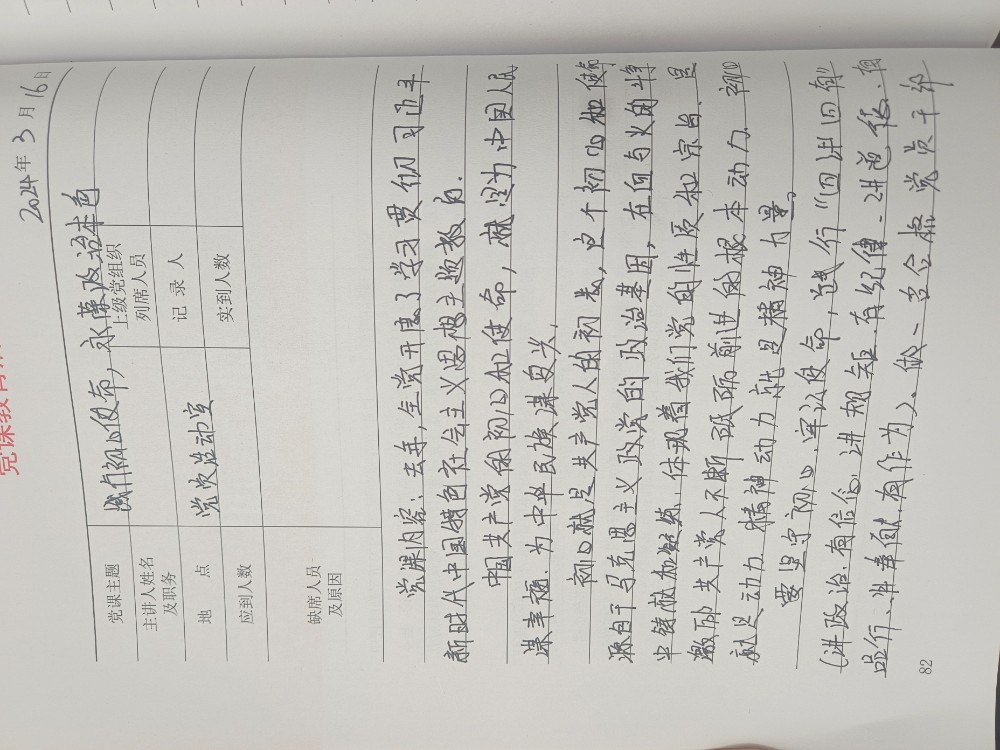 党课教育
2024年3月16日
党课主题 践行初心使命，永葆政治本色
主讲人姓名及职务
上级党组织列席人员
地点 党员活动室
记录人
应到人数
实到人数
缺席人员及原因
党课内容：去年，全党开展了学习贯彻习近平
新时代中国特色社会主义思想主题教育.
中国共产党的初心和使命，就是为中国人民
谋幸福.为中华民族谋复兴.
初心就是共产党人的初衷，这个初心和使命
源自于马克思主义政党的政治基因，在血与火的斗
中铸就和锻炼、体现着我们党的性质和宗旨.是
激励共产党人不断砥砺前进的根本动力.初心
就是动力.精神动力就是精神力量。
要坚守初心.牢记使命，践行“四讲四有”
(讲政治.有信仰.讲规矩.有纪律.讲道德.有
品行.讲奉献.有作为)。做一名合格党员干部
82